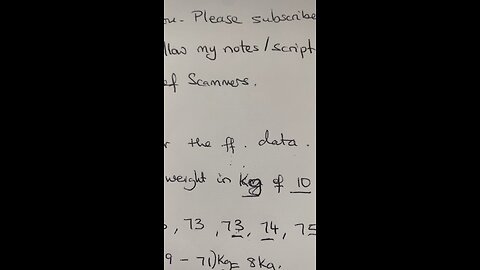 Please subscribe
my notes/script
of Scanners.
the ff. data.
weight in Kg of 10
, 73, 73, 74, 75
9 - 71)Kg = 8Kg.